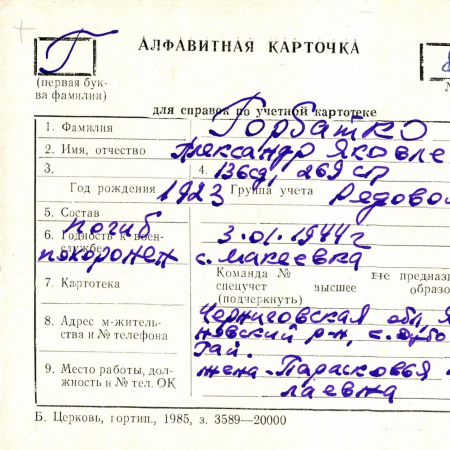 Г
АЛФАВИТНАЯ КАРТОЧКА
(первая бук-
ва фамилии)
для справок по учетной картотеке
1. Фамилия Горбатко
2. Имя, отчество Александр Яковле
3. 4. 136сд, 269 сп
Год рождения 1923 Группа учета Рядово
5. Состав погиб
6. Годность к воен-
службе 3.01.1944г
похоронен с. Макеевка
7. Картотека Команда № не предназ
спецучет высшее образо
(подчеркнуть)
8. Адрес м-житель-
ства и № телефона Черниговская обл, Я
новский р-н, с.
Гай.
9. Место работы, дол-
жность и № тел. ОК жена-Парасковья
лаевна
Б. Церковь, гортип., 1985, з. 3589—20000